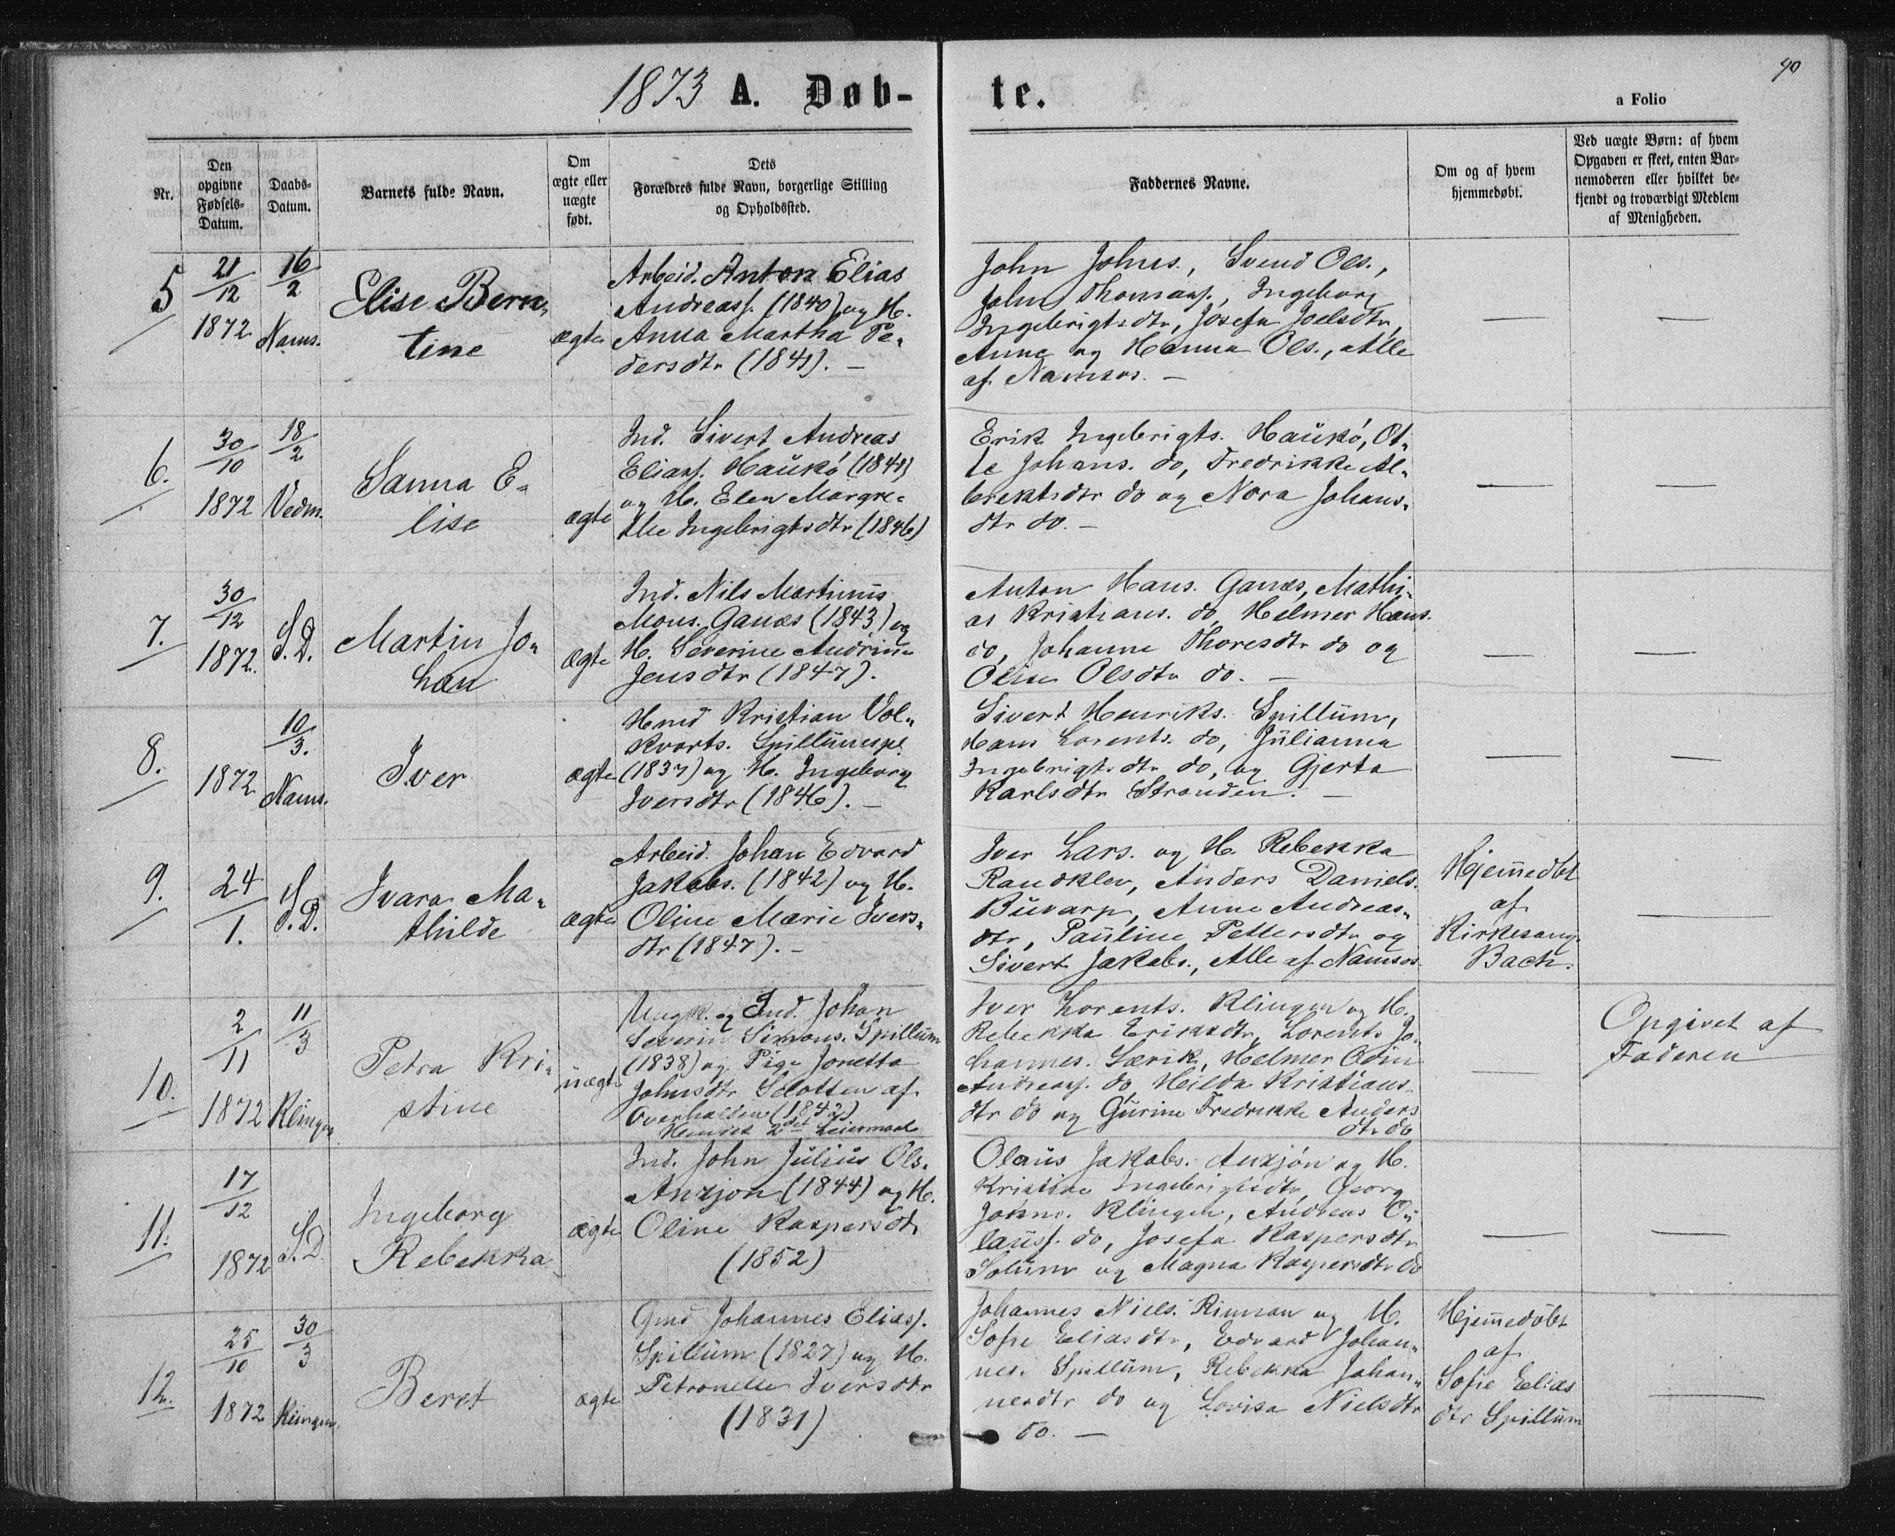 1873 A. Døb-
te.
90
a Folio
Nr.
Den
opgivne
Fødsels-
Datum.
Daabs-
Datum.
Barnets fulde Navn.
Om
ægte eller
uægte
født.
Dets
Forældres fulde Navn, borgerlige Stilling
og Opholdssted.
Faddernes Navne.
Om og af hvem
hjemmedøbt.
Ved uægte Børn: af hvem
Opgaven er skeet, enten Bar-
nemoderen eller hvilket be-
kjendt og troværdigt Medlem
af Menigheden.
5
21/12
1872
16/2
Nams.
Elise Bern-
tine
ægte
Arbeid. Anton Elias
Andreasf. (1840) og H.
Anna Martha Pe-
dersdtr (1841). —
John Johns., Svend Ols.,
John Thomasf., Ingeborg
Ingebrigtsdtr, Josefa Joelsdtr,
Anne og Hanna Ols., Alle
af Namsos. —
—
—
6.
30/10
1872
18/2
Vedm.
Sanna E-
lise
ægte
Ind. Sivert Andreas
Eliasf. Haukø (1841)
og H. Elen Margre-
the Ingebrigtsdtr (1846)
Erik Ingebrigts. Haukø, Ot-
te Johans. do, Fredrikke Al-
brektsdtr do og Nora Johans-
dtr do. —
—
—
7.
30/12
1872.
S.D.
Martin Jo-
han
ægte
Ind. Nils Martinus
Mons. Ganæs (1843) og
H. Severine Andrine
Jensdtr (1847).
Anton Hans. Ganæs, Mathi-
as Kristians. do, Helmer Hans.
do, Johanne Thoresdtr do og
Oline Olsdtr do. —
—
—
8.
1872
10/3.
Nams.
Iver
ægte
Hmd Kristian Vol-
kvarts. Spillumspl.
(1837) og H. Ingeborg
Iversdtr (1846). —
Sivert Henriks. Spillum,
Hans Lorents. do, Julianna
Ingebrigtsdtr do, og Gjerta
Karlsdtr Stranden. —
—
—
9.
24/1.
S.D.
Ivara Ma-
thilde
ægte
Arbeid. Johan Edvard
Jakobs. (1842) og H.
Oline Marie Ivers-
dtr (1847). —
Iver Lars. og H. Rebekka
Randklev, Anders Daniels.
Buvarp, Anne Andreas-
dtr, Pauline Pettersdtr og
Sivert Jakobs., Alle af Namsos.
Hjemedbt
af
Kirkesang.
Bach.
—
10.
2/11
1872
11/3
Klingen
Petra Kri-
stine
uægte
Ungk. og Ind. Johan
Severin Simons. Spillum
(1838) og Pige Jonetta
Johnsdtr Slotten af
Overhalden (1842)
Hendes 2det Leiermaal
Iver Lorents. Klingen og H.
Rebekka Eriksdtr, Lorents Jo-
hannes. Lærik, Helmer Odin
Andreasf. do, Hilda Kristians-
dtr do og Gurine Fredrikke Anders
dtr do
—
Opgivet af
Faderen
11.
17/12
1872
S.D.
Ingeborg
Rebekka
ægte
Ind. John Julius Ols.
Anzjøn (1844) og H.
Oline Kaspersdtr
(1852)
Olaus Jakobs. Anzjøn og H.
Kristine Ingebrigtsdtr, Georg
Johns. Klingen, Andreas O-
lausf. do, Josefa Kaspersdtr
Solum og Magna Kaspersdtr do
—
—
12.
25/10
1872
30/3
Klingen
Beret
ægte
Gmd Johannes Eliasf.
Spillum (1827) og H.
Petronelle Iversdtr
(1831)
Johannes Niels. Rinnan og H.
Sofie Eliasdtr, Edvard Johan-
nes. Spillum, Rebekka Johan-
nesdtr do og Lovisa Nielsdtr
do. —
Hjemedøbt
af
Sofie Elias
dtr Spillum
—